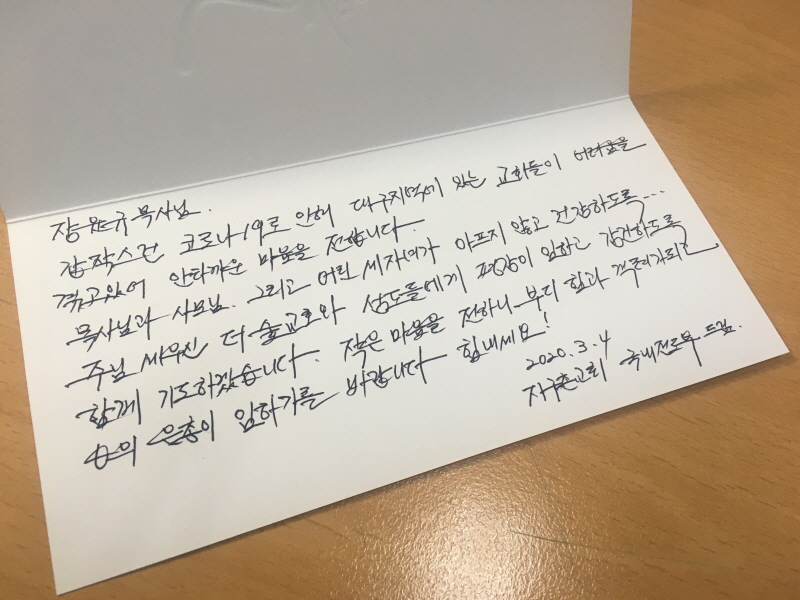 장윤규 목사님.
갑작스런 코로나19로 인해 대구지역에 있는 교회들이 어려움을
겪고있어 안타까운 마음을 전합니다.
목사님과 사모님. 그리고 어린 세자녀가 아프지 않고 건강하도록...
주님 세우신 더숲교회와 성도들에게 평강이 임하고 강건하도록
함께 기도하겠습니다. 작은 마음을 전하니 부디 힘과 격려가되고
주의 은총이 임하기를 바랍니다 힘내세요!
2020. 3. 4
지구촌교회 국내전도부 드림.